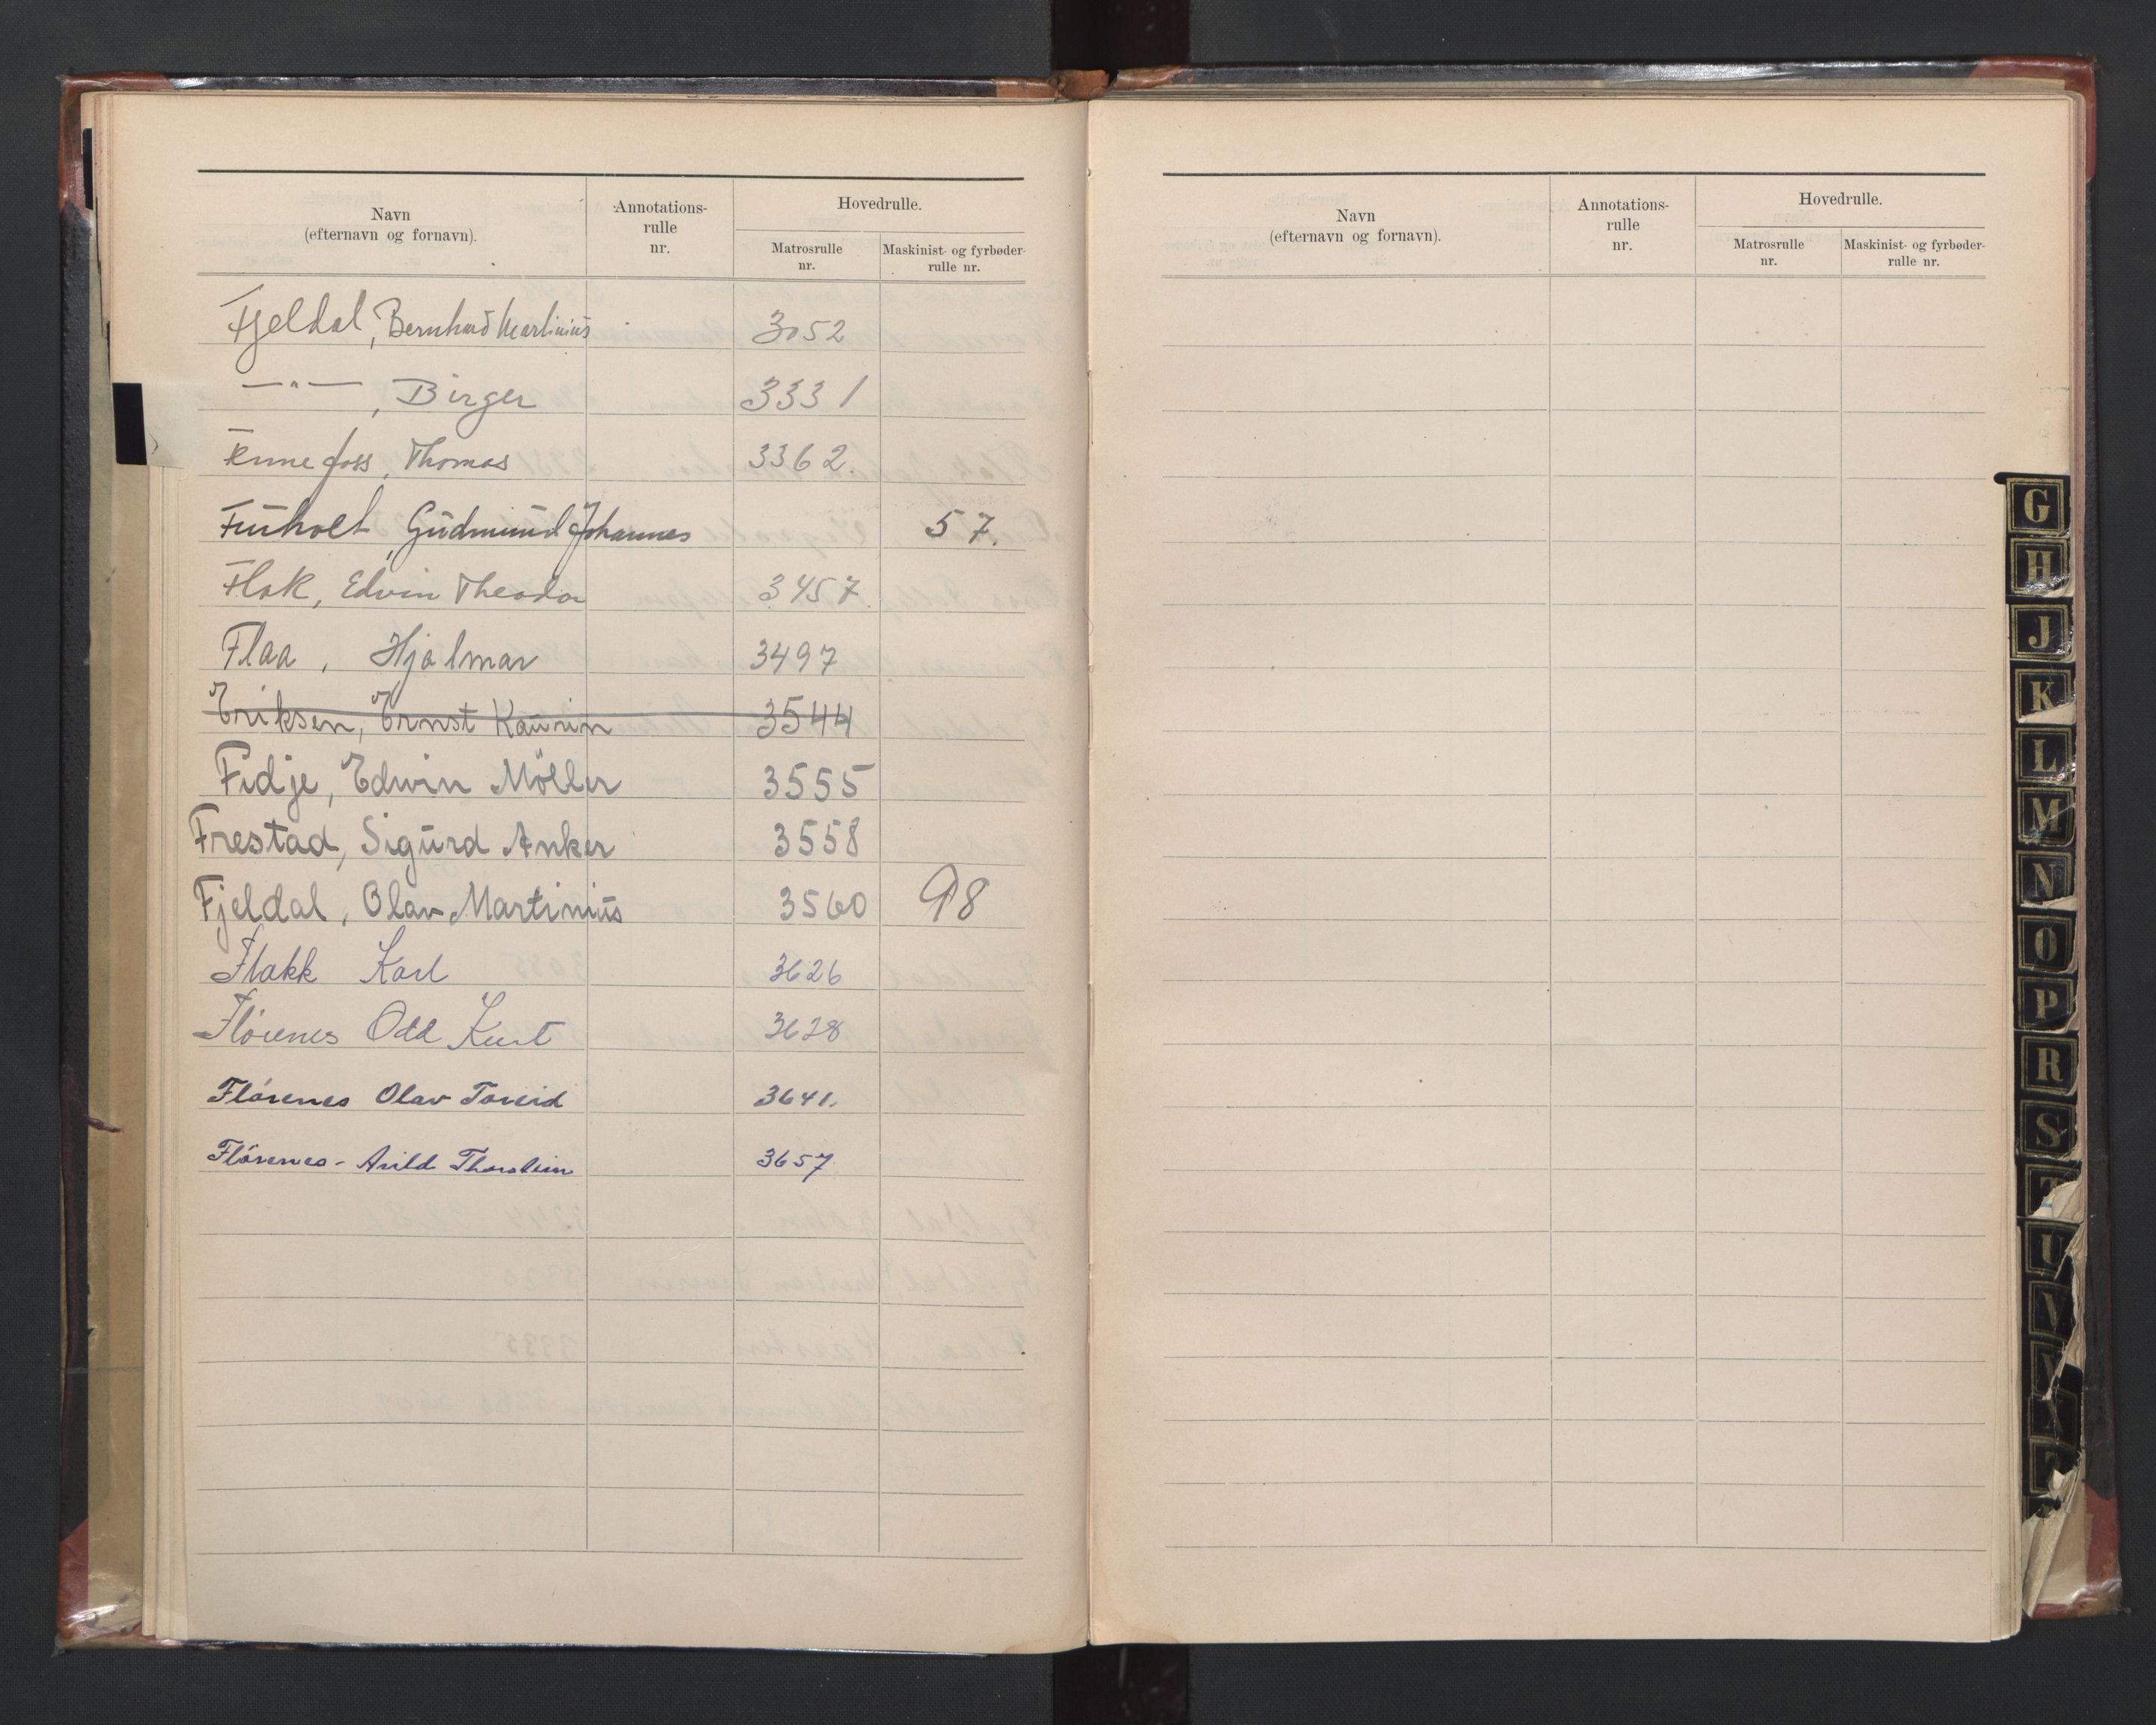 Navn (efternavn og fornavn). Annotations-rulle nr. Hovedrulle. Matrosrulle nr. Maskinist- og fyrbøder-rulle nr.
Fjeldal, Bernhard Martinius 3052
—"—, Birger 3331
Finnefoss, Thomas 3362.
Furholt, Gudmund Johannes 57.
Flak, Edvin Theodor 3457.
Flaa, Hjalmar 3497
Eriksen, Ernst Kaurin 3544
Fidje, Edwin Möller 3555
Frestad, Sigurd Anker 3558
Fjeldal, Olav Martinius 3560 98
Flakk Karl 3626
Flörenes Odd Kurt 3628
Flörenes Olav Toreid 3641.
Flörenes - Arild Thorstein 3657
Navn (efternavn og fornavn). Annotations-rulle nr. Hovedrulle. Matrosrulle nr. Maskinist- og fyrbøder-rulle nr.
G
H
J
K
L
M
N
O
P
R
S
T
U
V